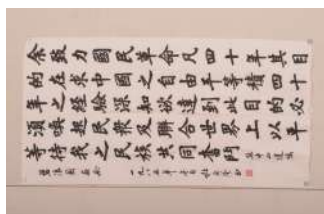 余致力國民革命凡四十年其目
的在求中國之自由平等積四十
年之經驗深知欲達到此目的必
須喚起民眾及聯合世界上以平
等待我之民族共同奮鬥